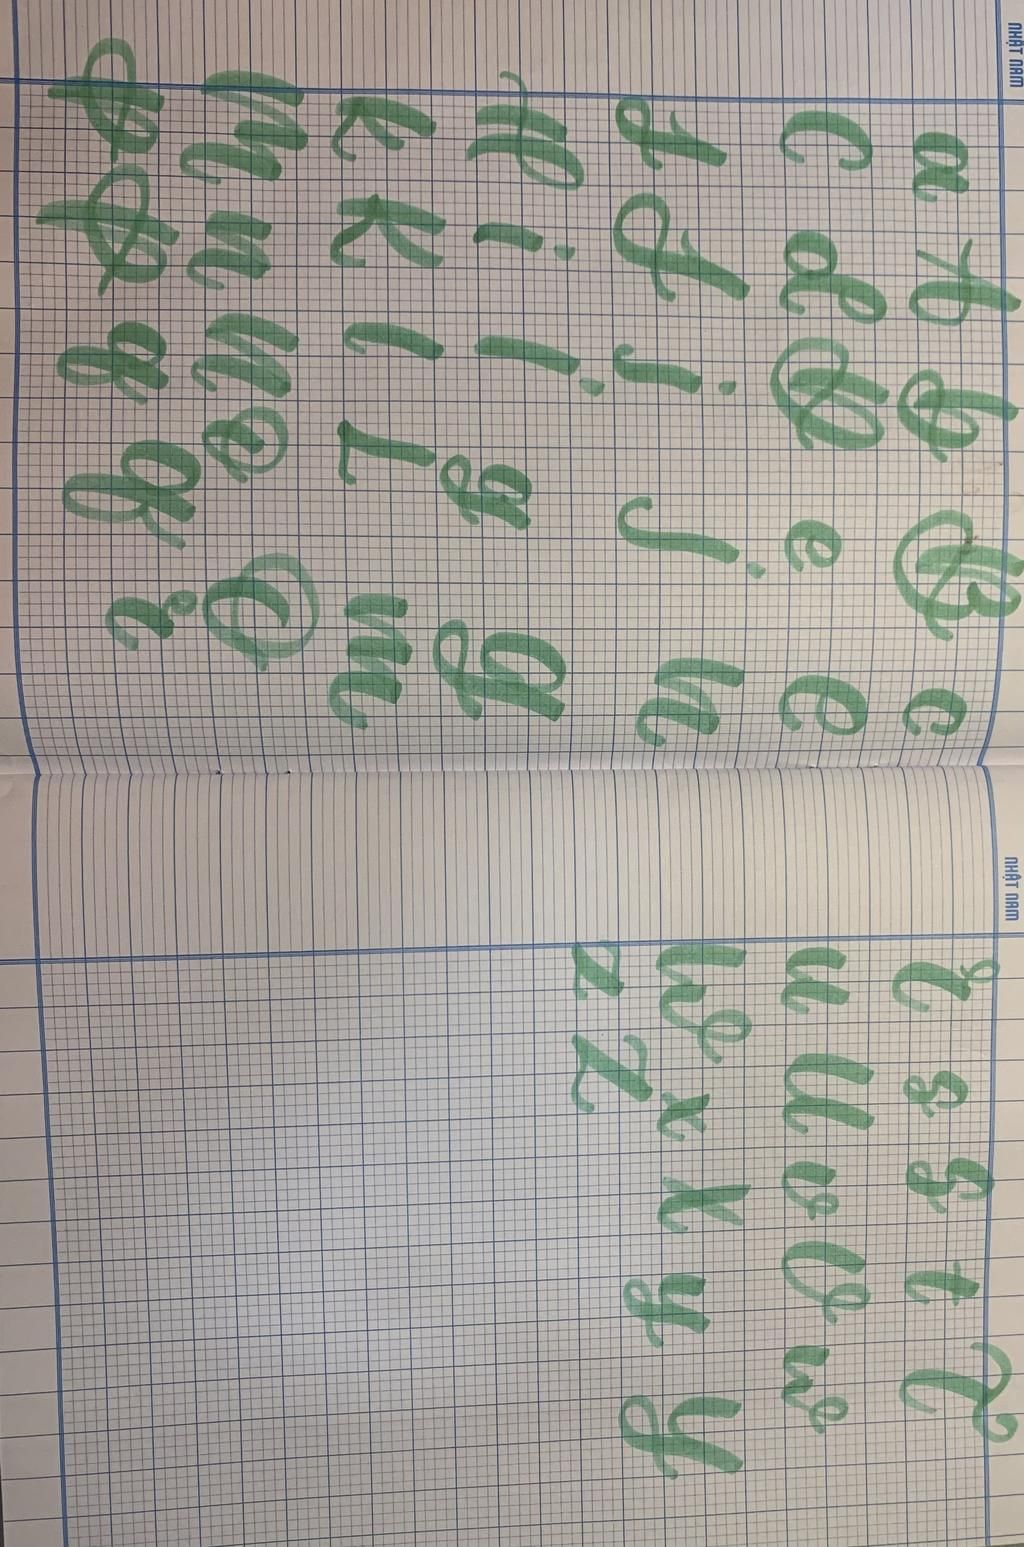 NHẬT NAM
a A b B c
C d D e E
f F j J h
H i I g G
k K l L m
M n N o O
p P q Q r
NHẬT NAM
R s S t T
u U v V w
W x X y Y
z Z